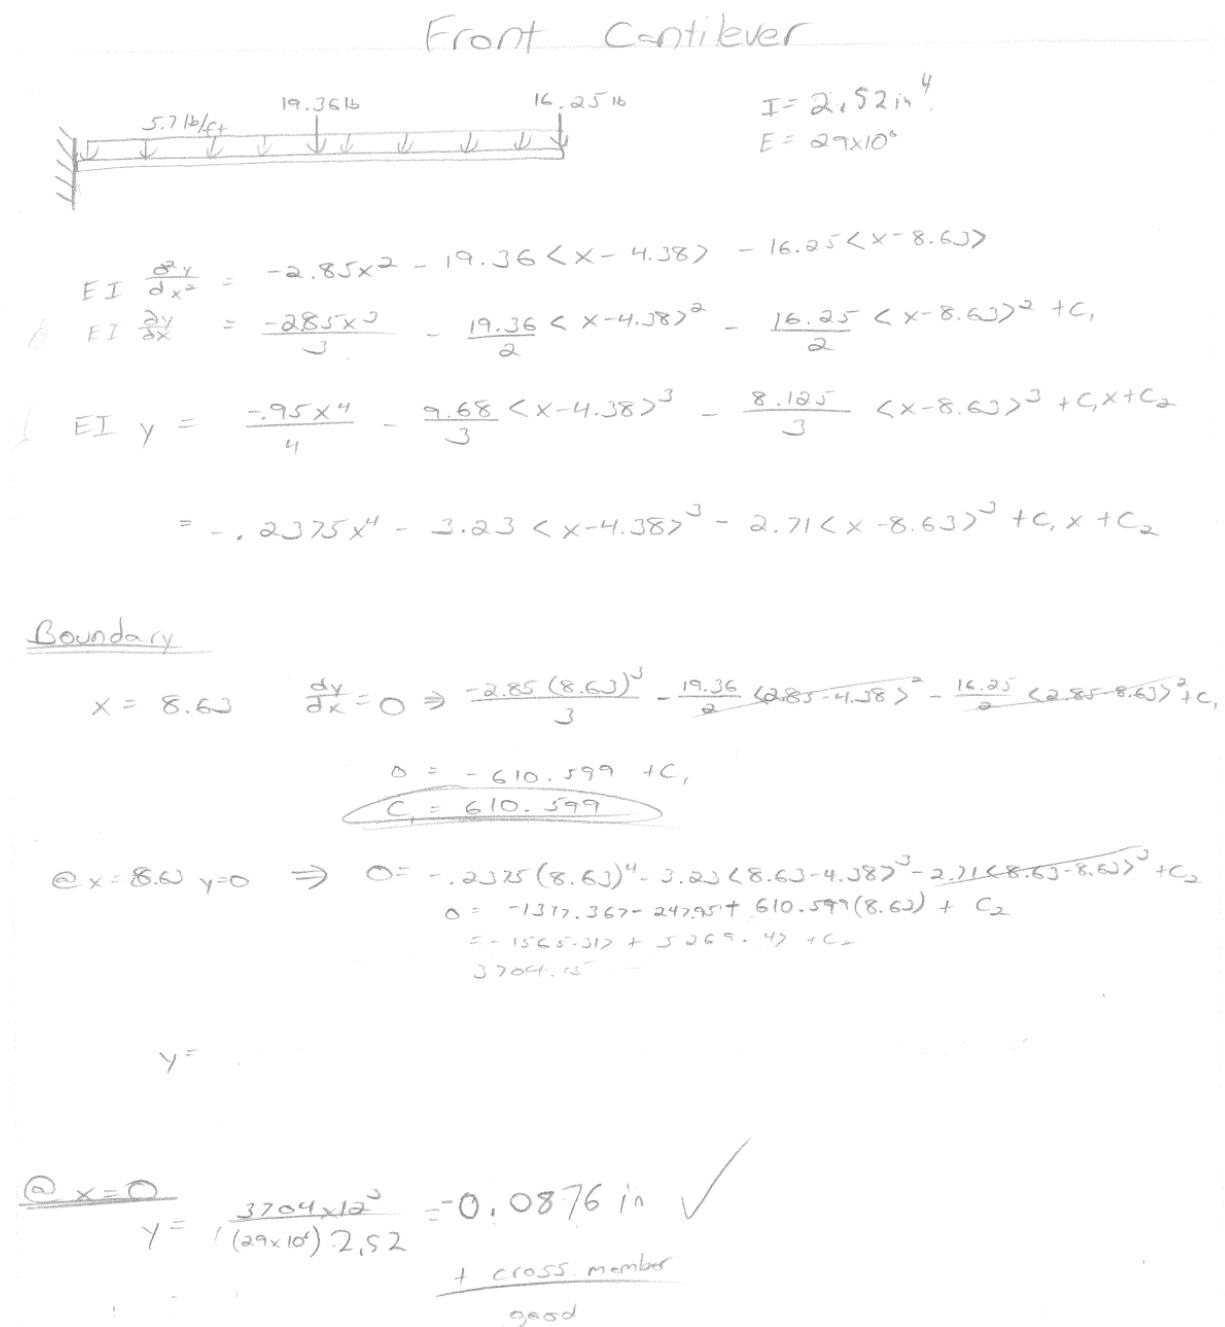 Front Cantilever
19.36 lb 16.25 lb I = 2.52 in⁴
5.7 lb/ft E = 29x10⁶
EI d²y/dx² = -2.85x² - 19.36 <x - 4.38> - 16.25 <x - 8.63>
EI dy/dx = -2.85x³/3 - 19.36/2 <x-4.38>² - 16.25/2 <x-8.63>² + C₁
EI y = -.95x⁴/4 - 9.68/3 <x-4.38>³ - 8.125/3 <x-8.63>³ + C₁x + C₂
= -.2375x⁴ - 3.23 <x-4.38>³ - 2.71 <x-8.63>³ + C₁x + C₂
Boundary
x = 8.63 dy/dx = 0 ⇒ -2.85(8.63)³/3 - 19.36/2 <2.85-4.38>² - 16.25/2 <2.85-8.63>² + C₁
0 = -610.599 + C₁
C₁ = 610.599
@ x = 8.63 y=0 ⇒ 0 = -.2375(8.63)⁴ - 3.23<8.63-4.38>³ - 2.71<8.63-8.63>³ + C₂
0 = -1317.367 - 247.95 + 610.599(8.63) + C₂
= -1565.317 + 5269.47 + C₂
3704.15
y =
@ x=0
y = 3704x12³/(29x10⁶)2.52 = -0.0876 in ✓
+ cross member
good